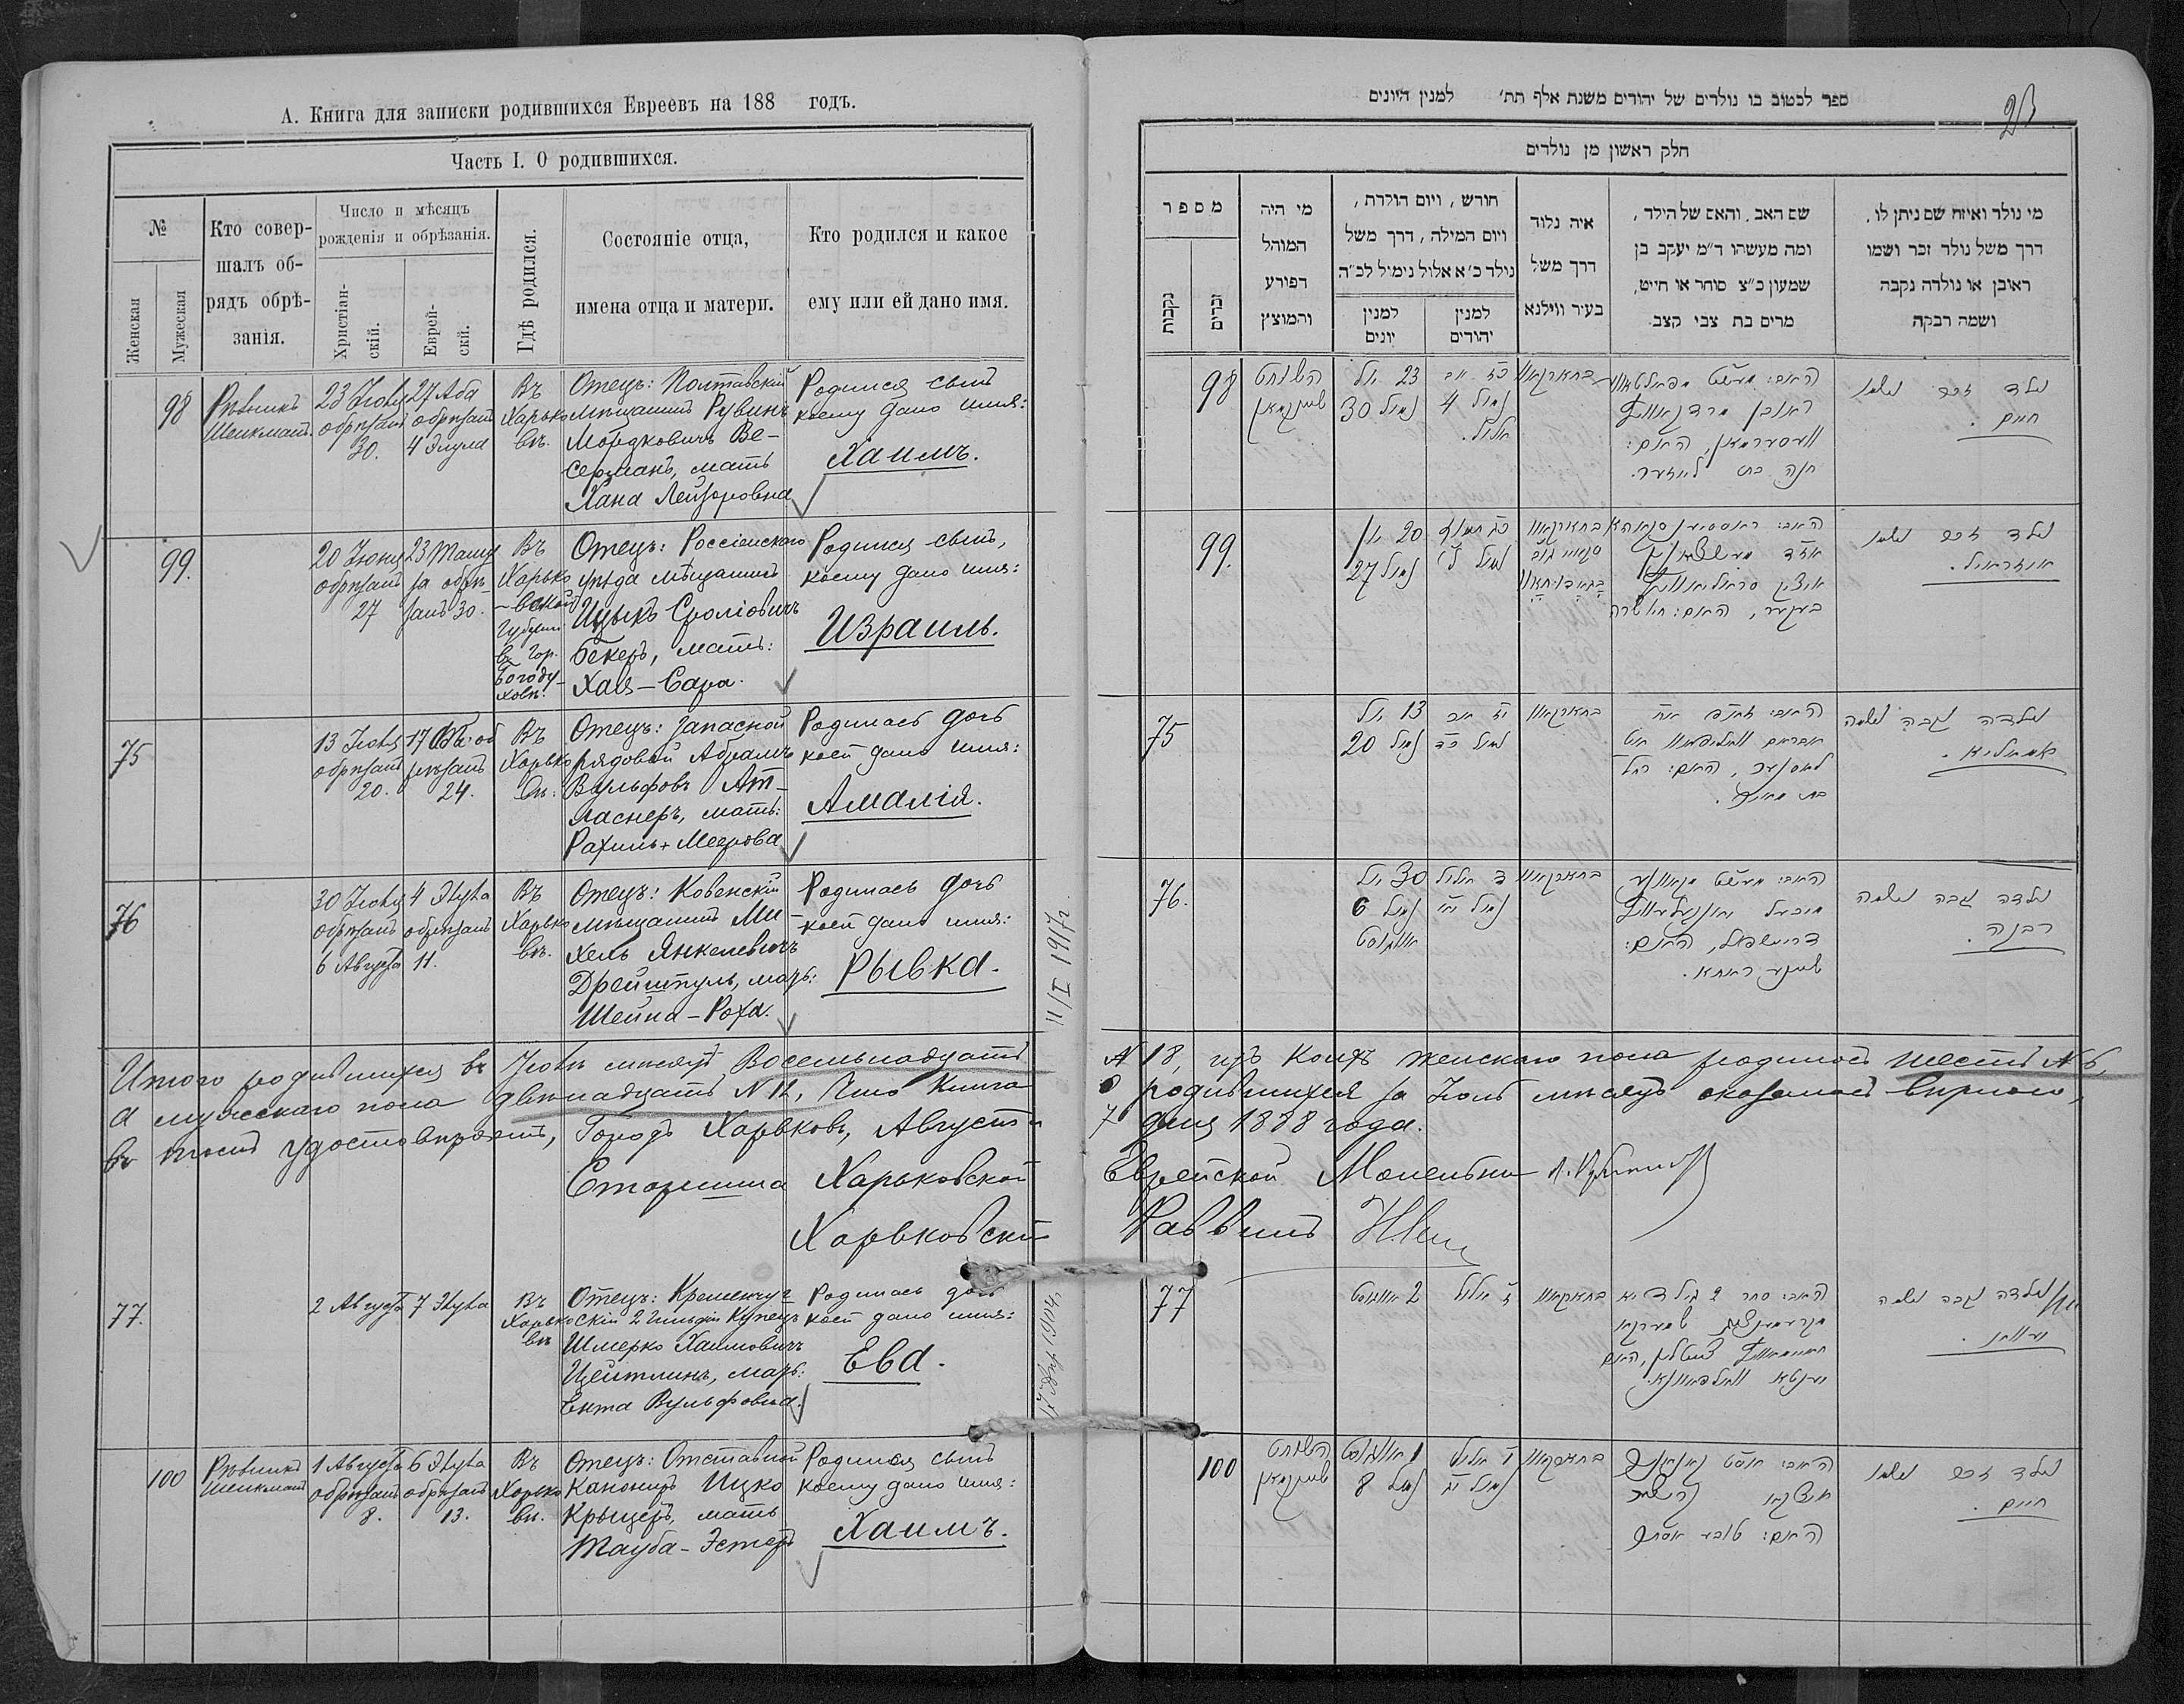 А. Книга для записки родившихся Евреевъ на 188 годъ.
Часть I. О родившихся.
№
Женская
Мужеская
Кто совер-
шалъ об-
рядъ обрѣ-
занія.
Число и мѣсяцъ
рожденія и обрѣзанія.
Христіан-
скій.
Еврей-
скій.
Гдѣ родился.
Состояніе отца,
имена отца и матери.
Кто родился и какое
ему или ей дано имя.
98
Рѣзникъ
Шенкманъ.
23 Іюля
обрѣзанъ
30.
27 Аба
обрѣзанъ
4 Элула
Въ
Харько
вѣ.
Отецъ: Полтавскій
мѣщанинъ Рувинъ
Мордковичъ Ве-
серманъ, мать
Хана Лейзеровна
Родился сынъ
коему дано имя:
Хаимъ.
99.
20 Іюня
обрѣзанъ
27
23 Тамуз
за обрѣ-
занъ 30.
Въ
Харько
-вской
Губерніи
въ гор.
Богоду-
ховѣ.
Отецъ: Россіенскаго
уѣзда мѣщанинъ
Ицыкъ Сроліовичъ
Бекеръ, мать:
Хая-Сара.
Родился сынъ,
коему дано имя:
Израиль.
75
13 Іюля
обрѣзанъ
20.
17 Абъ об
рѣзанъ
24.
Въ
Харько
вѣ.
Отецъ: запасной
рядовой Абрамъ
Вульфовъ Ат-
ласнеръ, мать:
Рахиль Меерова
Родилась дочь
коей дано имя:
Амалія.
76
30 Іюля
обрѣзанъ
6 Августа
4 Элула
обрѣзанъ
11.
Въ
Харько
вѣ.
Отецъ: Ковенскій
мѣщанинъ Ми-
хель Янкелевичъ
Дрейшпуль, мать:
Шейна-Роха.
Родилась дочь
коей дано имя:
Рывка.
11/I 1917г.
Итого родившихся въ Іюлѣ мѣсяцѣ Восемьнадцать
а мужескаго пола двѣнадцать N 12, Что Книга
въ томъ удостовѣряетъ, Городъ Харьковъ, Августа
Старшина Харьковской
Харьковскій
77.
2 Августа
7 Элула
Въ
Харько
вѣ
Отецъ: Кременчуг
скій 2 гильдіи Купецъ
Шмерко Хаимовичъ
Цейтлинъ, мать:
Ента Вульфовна.
Родилась дочь
коей дано имя:
Ева.
100
Рѣзникъ
Шенкманъ
1 Августа
обрѣзанъ
8.
6 Элула
обрѣзанъ
13.
Въ
Харько
вѣ.
Отецъ: Отставной
Канониръ Ицко
Крыцеръ, мать
Тауба-Эстеръ
Родился сынъ
коему дано имя:
Хаимъ.
ספר לכטוב בו נולדים של יהודים משנת אלף תת׳ למנין היונים
חלק ראשון מן נולדים
מספר
נקבות
זכרים
מי היה
המוהל
דפורע
והמוצץ
חורש, ויום הולדת,
ויום המילה, דרך משל
נולד כ״א אלול נימיל לכ״ה
למנין
יונים
למנין
יהודים
איה נלוד
דרך משל
בעיר ווילנא
שם האב, והאם של הילד,
ומה מעשהו ד״מ יעקב בן
שמעון כ״צ סוחר או חייט,
מרים בת צבי קצב.
מי נולד ואיזה שם ניתן לו,
דרך משל נולד זכר ושמו
ראובן או נולדה נקבה
ושמה רבקה
98
השוחט
שענקמאן
23 יול
נמול 30
כז אב
נמול 4
אלול.
בחארקאוו
ראובן מרדכאוויץ
וועסערמאן, האם:
חנה בת לייזער.
נולד זכר ושמו
חיים.
99.
20 יונ
נמול 27
נולד זכר ושמו
איזראיל.
75
13 יול
נמול 20
יז אב
נמול כד
בחארקאוו
נולדה נקבה ושמה
אמאליא.
76.
30 יול
נמול 6
אווגוסט
ד אלול
נמול יא
בחארקאוו
נולדה נקבה ושמה
רבקה.
N 18, изъ коихъ женскаго пола родилось шесть N 6,
о родившихся за Іюль мѣсяцъ оказалась вѣрною,
7 дня 1888 года.
Еврейской Молельни
Раввинъ
77
2 אווגוסט
ז אלול
בחארקאוו
נולדה נקבה ושמה
100
השוחט
שענקמאן
1 אווגוסט
נמול 8
ו אלול
נמול יג
בחארקאוו
נולד זכר ושמו
חיים.